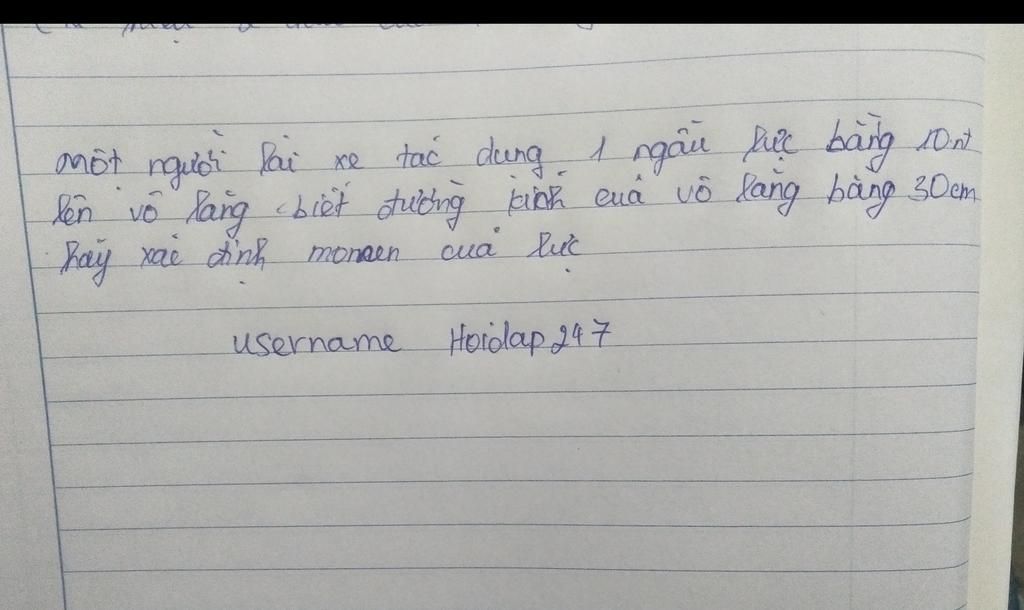 một người lái xe tác dụng 1 ngẫu lực bằng 10N
lên vô lăng biết đường kính của vô lăng bằng 30cm
hãy xác định momen của lực
username Hoidap247